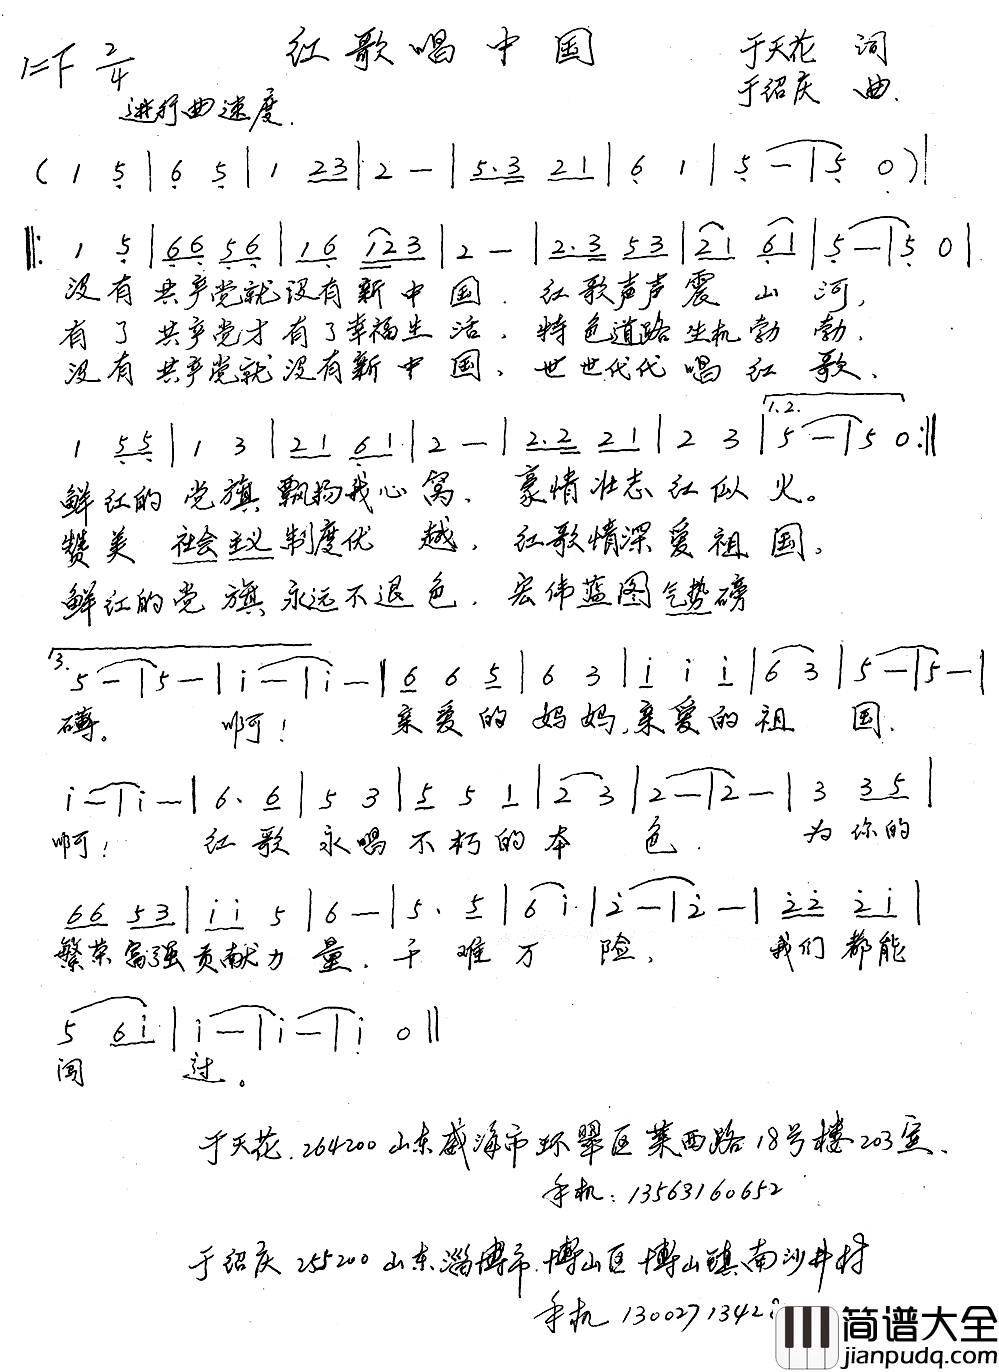 红歌唱中国
1=F 2/4
于天花 词
于绍庆 曲.
进行曲速度.
( 1 5 | 6 5 | 1 23 | 2 — | 5.3 21 | 6 1 | 5 — | 5 0 ) |
‖: 1 5 | 66 56 | 16 123 | 2 — | 2.3 53 | 21 61 | 5 — | 5 0 |
没有 共产党就没有新中国. 红歌声声震山河,
有了共产党才有了幸福生活, 特色道路生机勃勃.
没有共产党就没有新中国, 世世代代唱红歌.
1.2.
1 55 | 1 3 | 21 61 | 2 — | 2.2 21 | 2 3 | 5 — | 5 0 :‖
鲜红的党旗飘扬我心窝, 豪情壮志红似火。
赞美社会主义制度优越, 红歌情深爱祖国,
鲜红的党旗永远不退色, 宏伟蓝图气势磅
3.
5 — | 5 — | i — | i — ‖ 6 6 5 | 6 3 | i i i | 6 3 | 5 — | 5 — |
礴。 啊! 亲爱的妈妈,亲爱的祖国.
i — | i — | 6. 6 | 5 3 | 5 5 1 | 2 3 | 2 — | 2 — | 3 35 |
啊! 红歌永唱不朽的本色. 为你的
66 53 | i i 5 | 6 — | 5. 5 | 6 i | 2 — | 2 — | 22 2i |
繁荣富强贡献力量, 千难万险, 我们都能
5 6i | i — | i — | i 0 ‖
闯过。
于天花.264200山东威海市环翠区莱西路18号楼203室.
手机:13563160652
于绍庆 255200山东淄博市博山区博山镇南沙井村
手机 1300271342
简谱大全
jianpudq.com